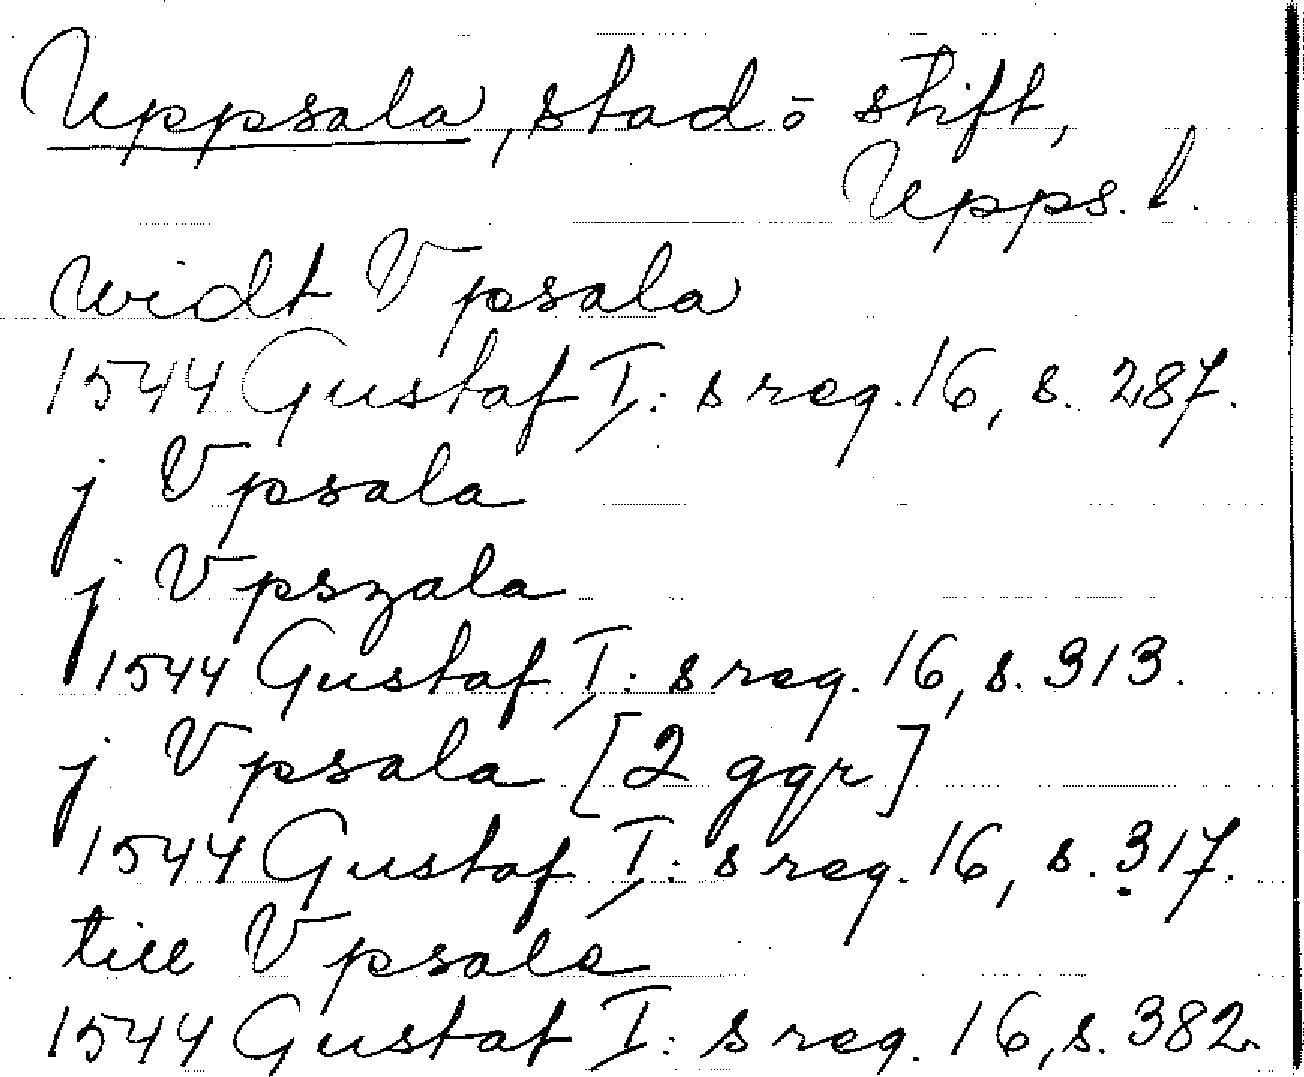 Uppsala, stad o stift,
Upps. l.
widt Vpsala
1544 Gustaf I: s reg. 16, s. 287.
j Vpsala
j Vpszala
1544 Gustaf I: s reg. 16, s. 313.
j Vpsala [2 ggr]
1544 Gustaf I: s reg. 16, s. 317.
till Vpsala
1544 Gustaf I: s reg. 16, s. 382.